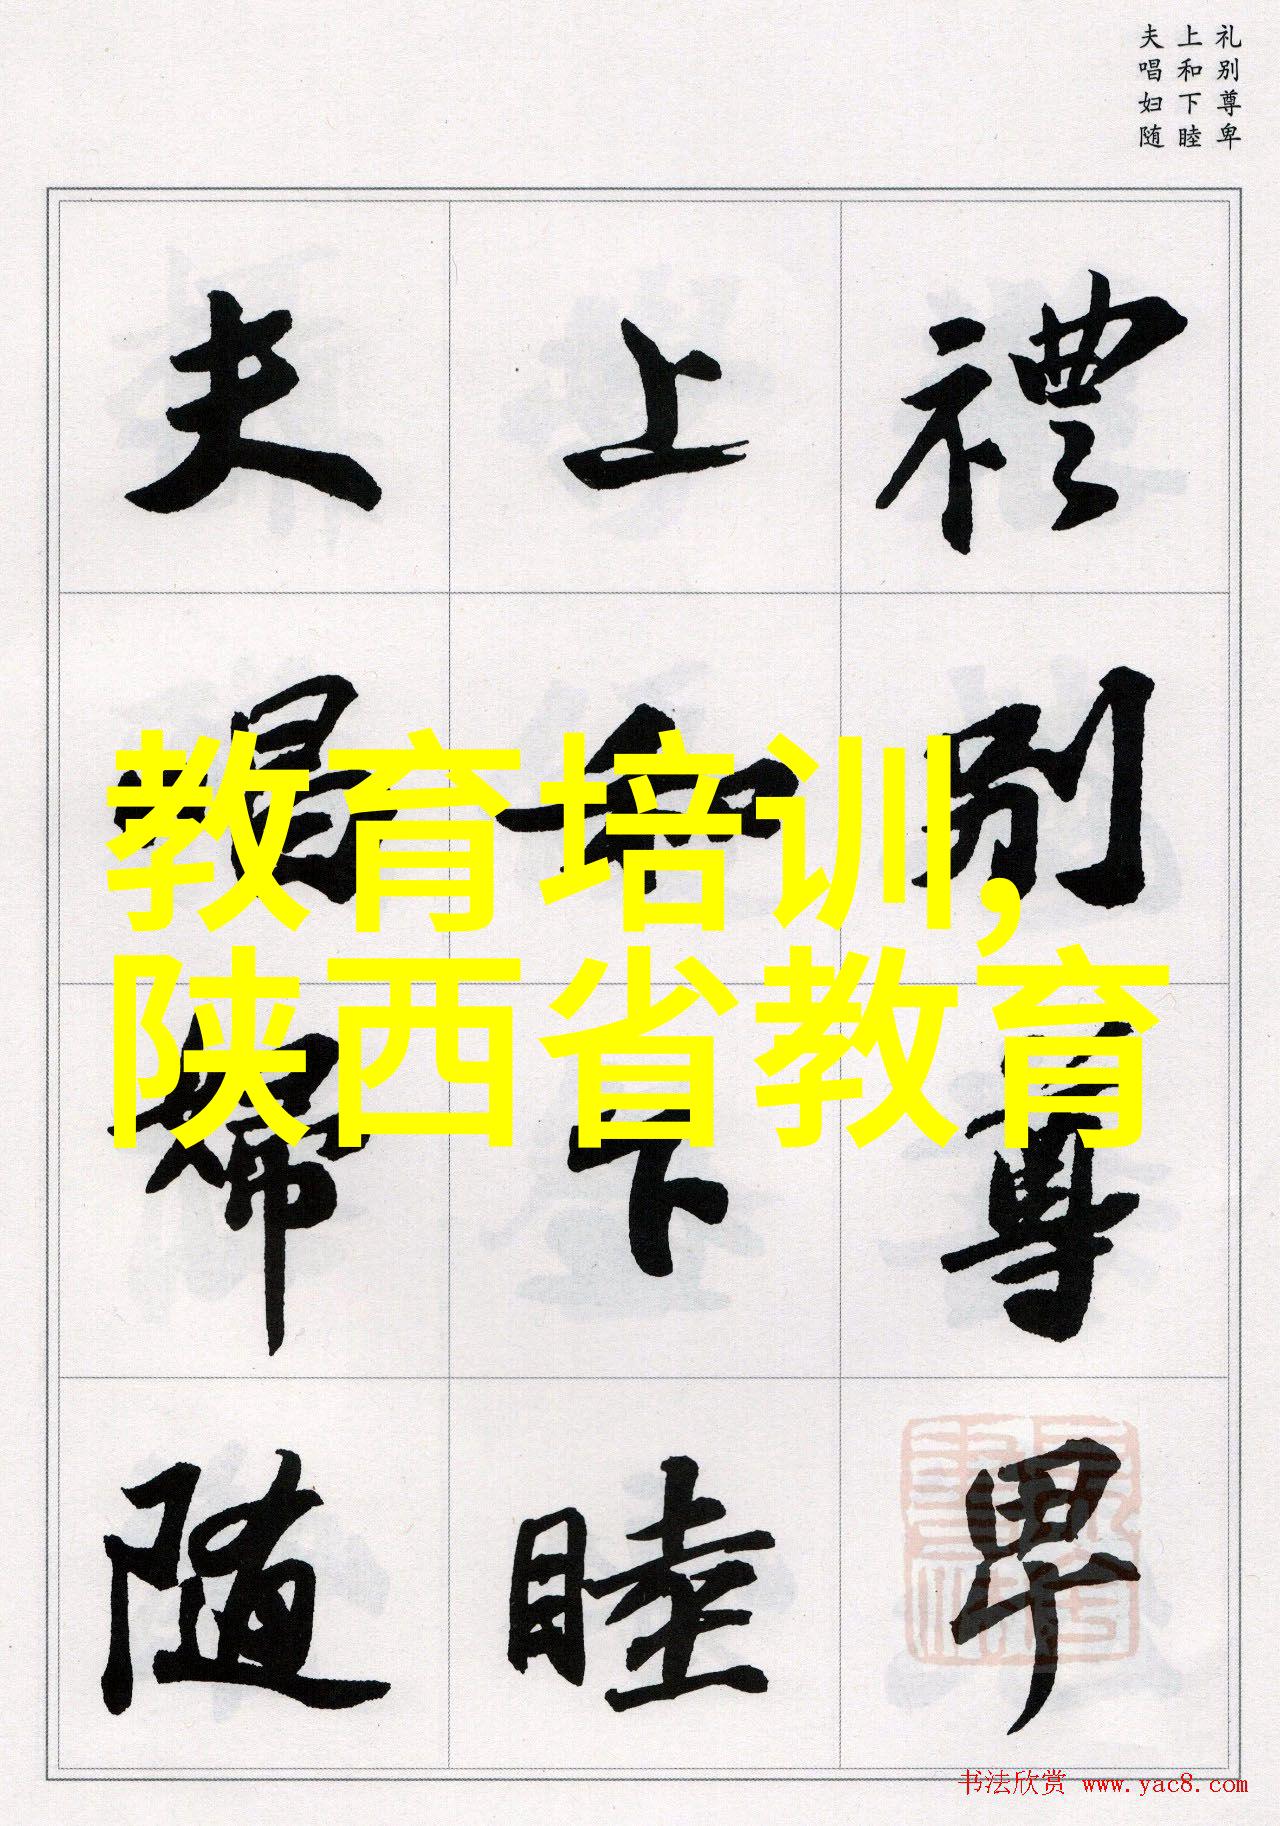 礼别尊卑
上和下睦
夫唱妇随
禮别尊卑
上和下睦
夫唱婦随
教育培训,
陕西省教育
书法欣赏 www.yac8.com